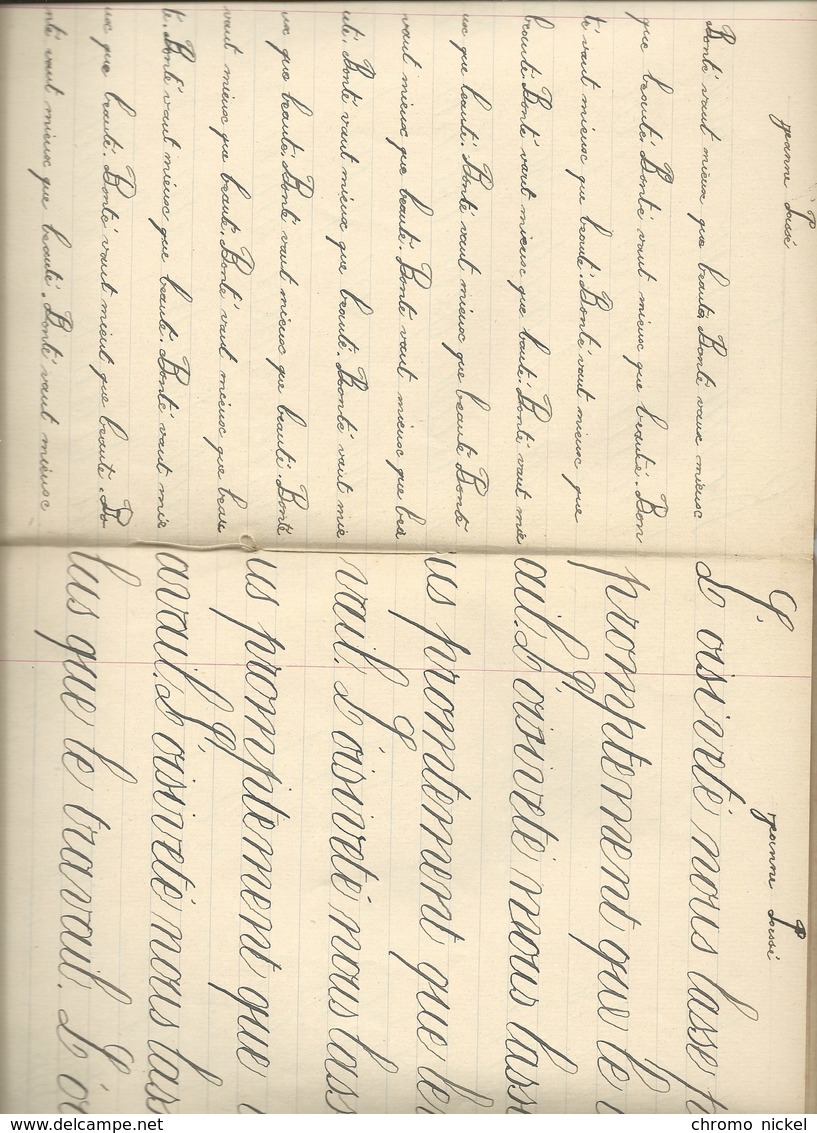 jeanne
Bonté vaut mieux que beauté Bonté vaux mieux
que beauté. Bonté vaut mieux que beauté. Bon
té vaut mieux que beauté. Bonté vaut mieux que
beauté. Bonté vaut mieux que bauté. Bonté vaut mie
ux que beauté. Bonté vaut mieux que beauté Bonté
vaut mieux que beauté. Bonté vaut mieux que bea
uté. Bonté vaut mieux que beauté. Bonté vaut mie
ux que beauté. Bonté vaut mieux que beauté. Bonté
vaut mieux que beauté. Bonté vaut mieux que beau
té. Bonté vaut mieux que beauté. Bonté vaut mie
ux que beauté. Bonté vaut mieux que beauté. Bo
nté vaut mieux que beauté. Bonté vaut mieux
jeanne
L'oisiveté nous lasse p
promptement que le
ail. L'oisiveté nous lass
us promtement que le
vail. L'oisivté nous lass
us promptement que
avail. L'oisiveté nous las
lus que le travail. L'oi
delcampe.net
chromo nickel